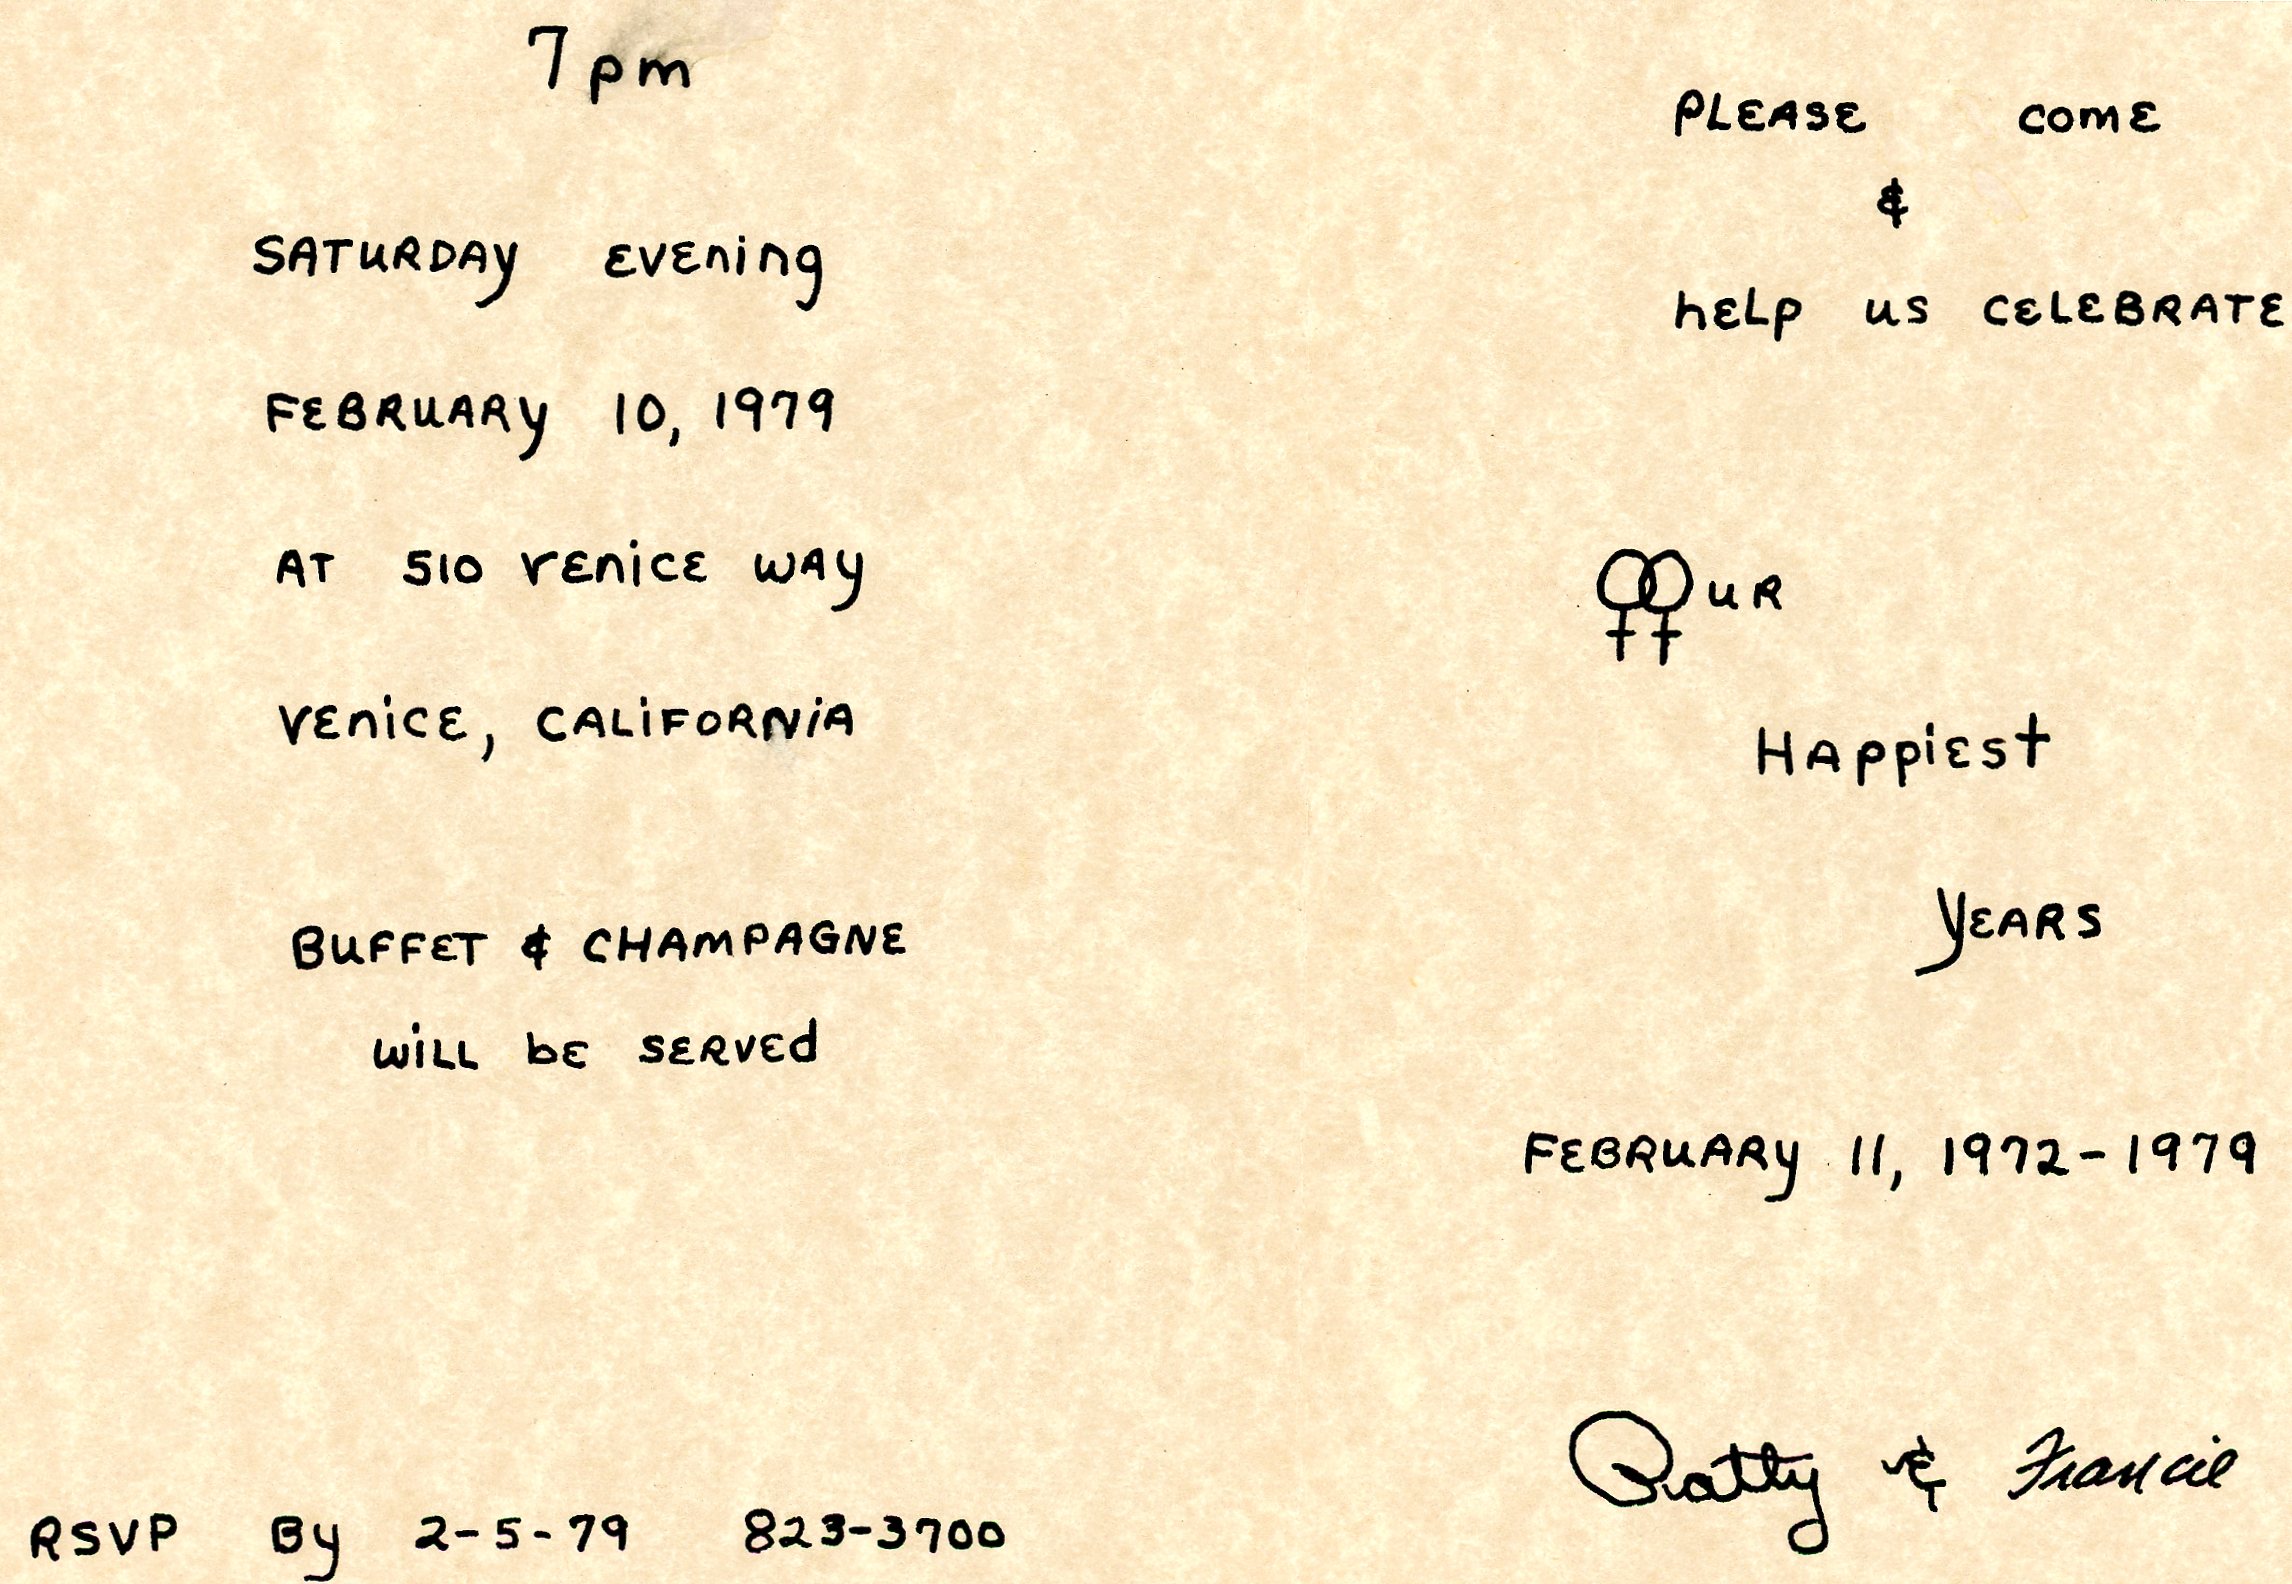 7 pm
SATURDAY EVENING
FEBRUARY 10, 1979
AT 510 VENICE WAY
VENICE, CALIFORNIA
BUFFET & CHAMPAGNE
WILL BE SERVED
RSVP BY 2-5-79 823-3700
PLEASE COME
&
HELP US CELEBRATE
⚢UR
HAPPIEST
YEARS
FEBRUARY 11, 1972-1979
Patty & Francie